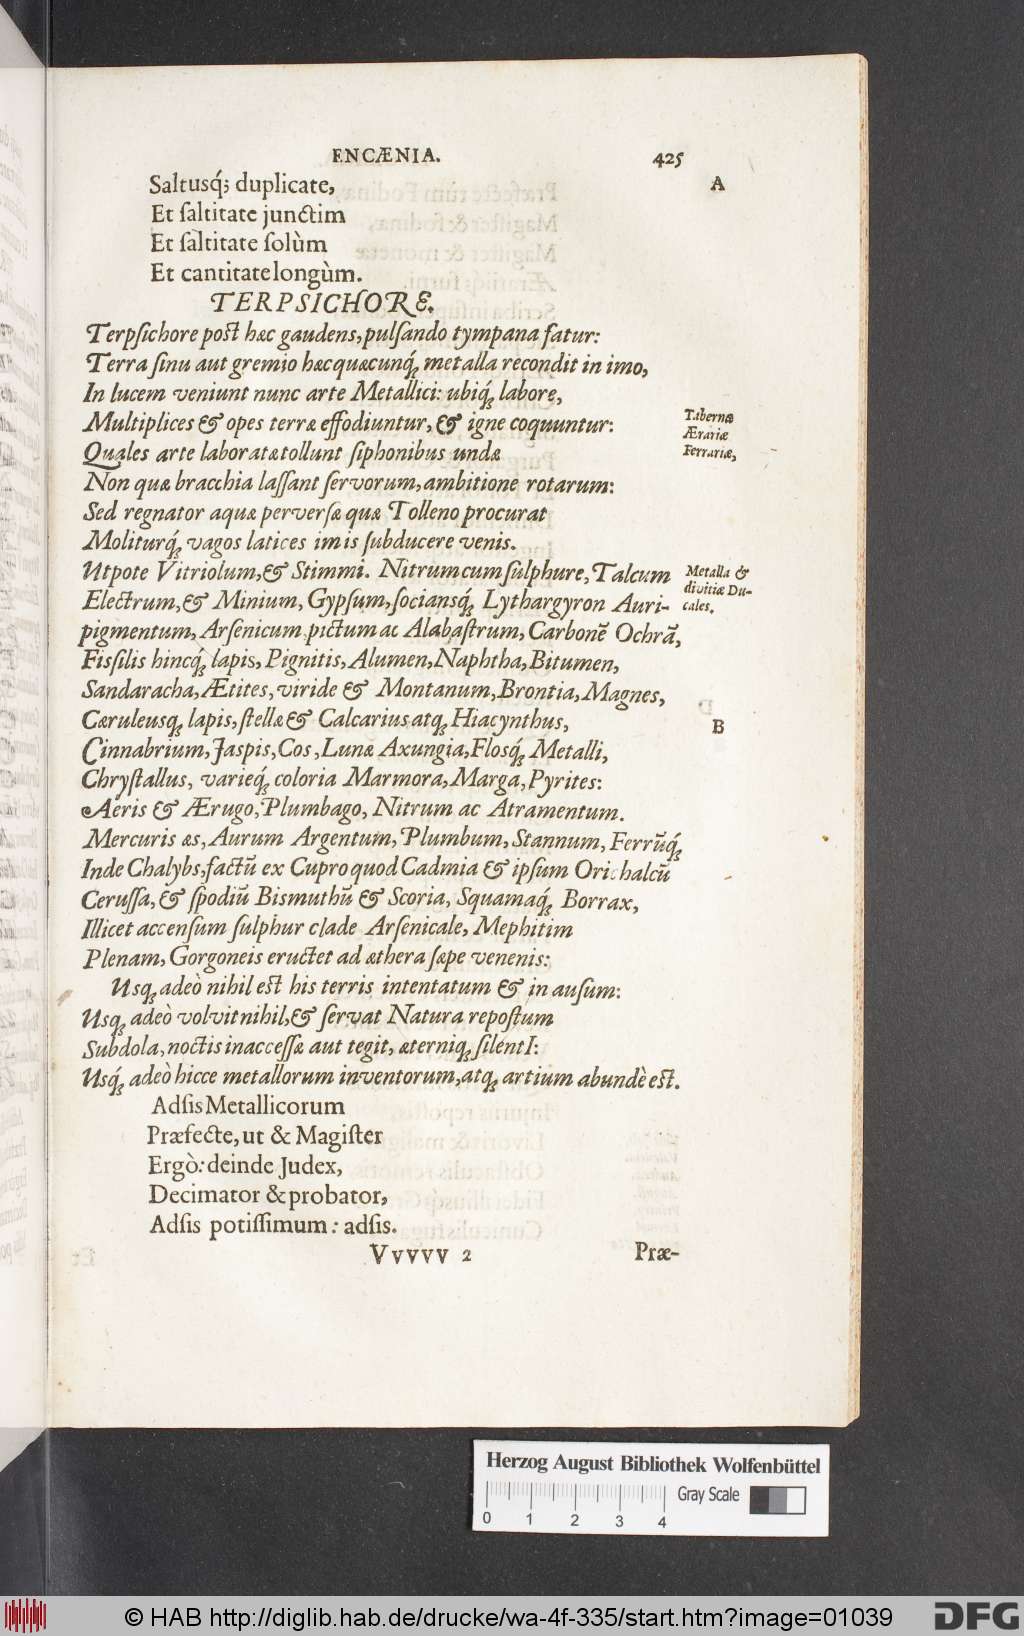 ENCÆNIA. 425
Saltusq́; duplicate, A
Et ſaltitate junctim
Et ſaltitate ſolùm
Et cantitate longùm.
TERPSICHORE.
Terpſichore poſt hæc gaudens, pulſando tympana fatur:
Terra ſinu aut gremio hæc quæcunq́; metalla recondit in imo,
In lucem veniunt nunc arte Metallici: ubiq́; labore,
Multiplices & opes terræ effodiuntur, & igne coquuntur:
Tabernæ
Ærariæ
Ferrariæ,
Quales arte laboratæ tollunt ſiphonibus undæ
Non quæ bracchia laſſant ſervorum, ambitione rotarum:
Sed regnator aquæ perverſæ quæ Tolleno procurat
Moliturq́; vagos latices imis ſubducere venis.
Utpote Vitriolum, & Stimmi. Nitrum cum ſulphure, Talcum
Metalla &
divitiæ Du-
cales.
Electrum, & Minium, Gypſum, ſociansq́; Lythargyron Auri-
pigmentum, Arſenicum pictum ac Alabaſtrum, Carbonẽ Ochrã,
Fiſſilis hincq́; lapis, Pignitis, Alumen, Naphtha, Bitumen,
Sandaracha, Ætites, viride & Montanum, Brontia, Magnes,
Cæruleusq; lapis, ſtellæ & Calcarius atq; Hiacynthus, B
Cinnabrium, Jaspis, Cos, Lunæ Axungia, Flosq́; Metalli,
Chryſtallus, varieq́; coloria Marmora, Marga, Pyrites:
Aeris & Ærugo, Plumbago, Nitrum ac Atramentum.
Mercuris æs, Aurum Argentum, Plumbum, Stannum, Ferrũq́;
Inde Chalybs, factũ ex Cupro quod Cadmia & ipſum Orichalcũ
Ceruſſa, & ſpodiũ Bismuthũ & Scoria, Squamaq́; Borrax,
Illicet accenſum ſulphur clade Arſenicale, Mephitim
Plenam, Gorgoneis eructet ad æthera ſæpe venenis:
Usq; adeò nihil eſt his terris intentatum & in auſum:
Usq; adeò volvit nihil, & ſervat Natura repoſtum
Subdola, noctis inacceſſæ aut tegit, æterniq; ſilentI:
Usq́; adeò hicce metallorum inventorum, atq; artium abundè eſt.
Adſis Metallicorum
Præfecte, ut & Magiſter
Ergò: deinde Judex,
Decimator & probator,
Adſis potiſſimum: adſis.
Vvvvv 2 Præ-
Herzog August Bibliothek Wolfenbüttel
Gray Scale
0 1 2 3 4
© HAB http://diglib.hab.de/drucke/wa-4f-335/start.htm?image=01039
DFG